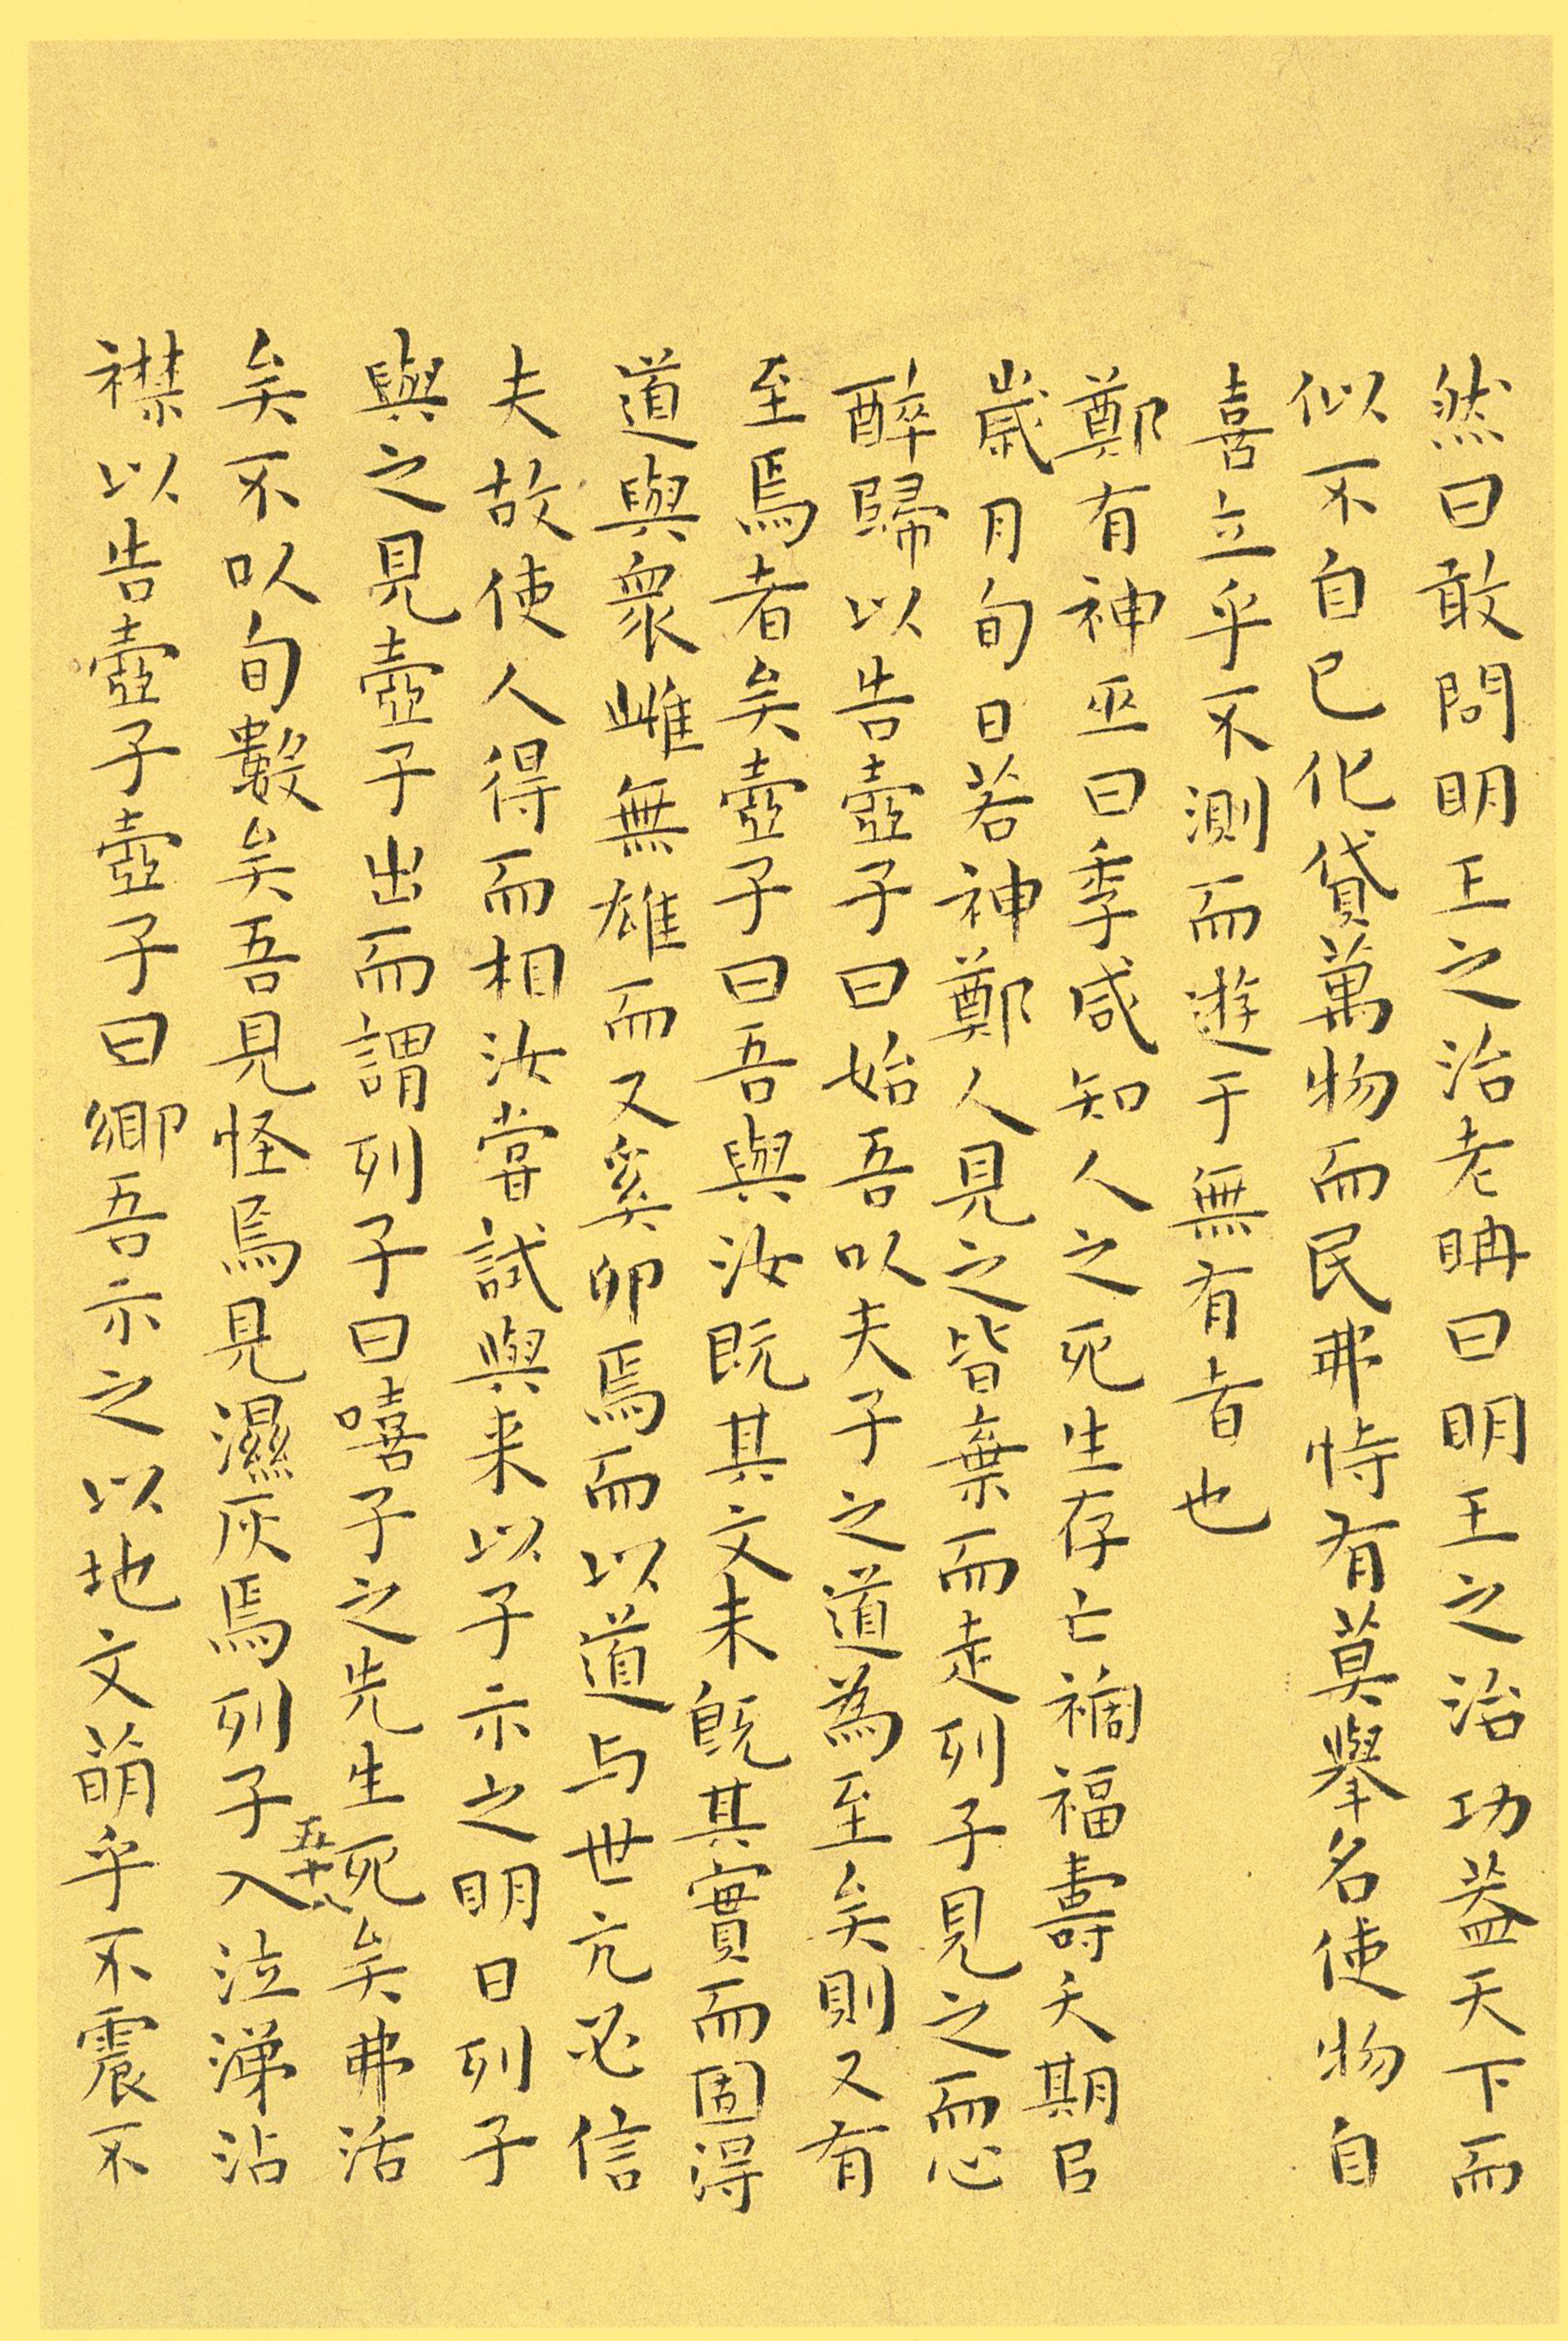 然曰敢問明王之治老聃曰明王之治功蓋天下而
似不自已化貸萬物而民弗恃有莫舉名使物自
喜立乎不測而遊于無有者也
鄭有神巫曰季咸知人之死生存亡禍福壽夭期以
歲月旬日若神鄭人見之皆棄而走列子見之而心
醉歸以告壺子曰始吾以夫子之道為至矣則又有
至焉者矣壺子曰吾與汝既其文未既其實而固得
道與衆雌無雄而又奚卵焉而以道与世亢必信
夫故使人得而相汝嘗試與来以子示之明日列子
與之見壺子出而謂列子曰嘻子之先生死矣弗活
矣不以旬數矣吾見怪焉見濕灰焉列子入泣涕沾
襟以告壺子壺子曰鄉吾示之以地文萌乎不震不
五十八